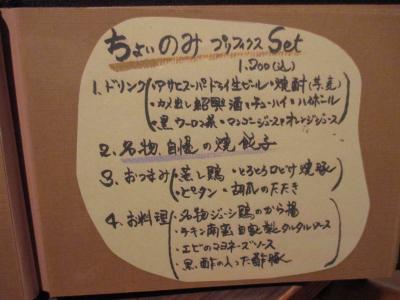 ちょいのみ プリフィクス Set
1,200(込)
1.ドリンク ・アサヒスーパードライ生ビール・焼酎(芋、麦)
・カメ出し紹興酒・チューハイ・ハイボール
・黒ウーロン茶・マンゴージュース・オレンジジュース
2.名物、自慢の焼餃子
3.おつまみ ・蒸し鶏・とろとろ口どけ焼豚
・ピタン・胡瓜のたたき
4.お料理 ・名物ジューシ鶏のから揚
・チキン南蛮 自家製タルタルソース
・エビのマヨネーズソース
・黒酢の入った酢豚